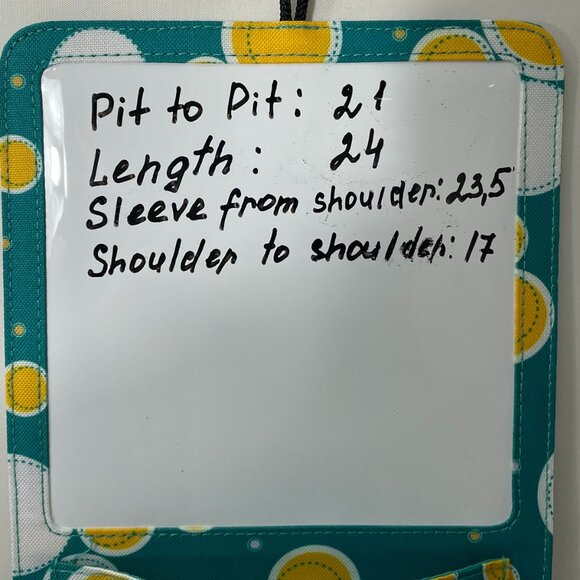 Pit to Pit: 21
Length: 24
Sleeve from shoulder: 23,5
Shoulder to shoulder: 17